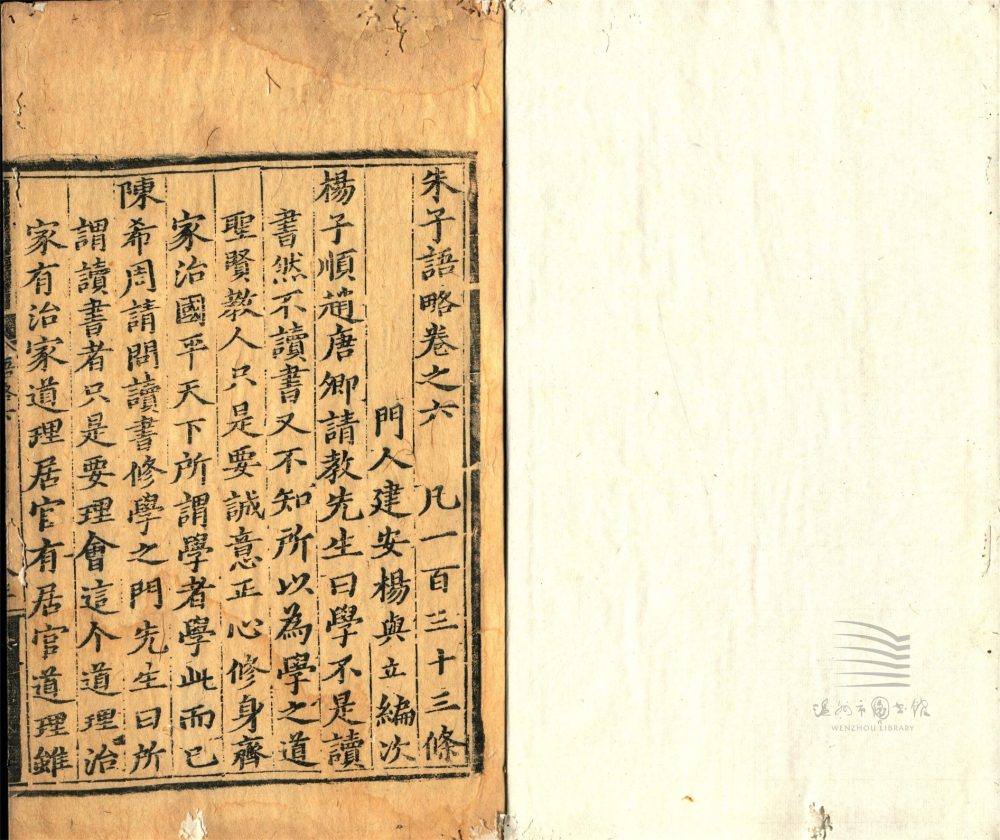 朱子語略卷之六　凡一百三十三條
門人建安楊與立編次
楊子順趙唐卿請教先生曰學不是讀
書然不讀書又不知所以為學之道
聖賢教人只是要誠意正心修身齊
家治國平天下所謂學者學此而已
陳希周請問讀書修學之門先生曰所
謂讀書者只是要理會這个道理治
家有治家道理居官有居官道理雖
温州市图书馆
WENZHOU LIBRARY